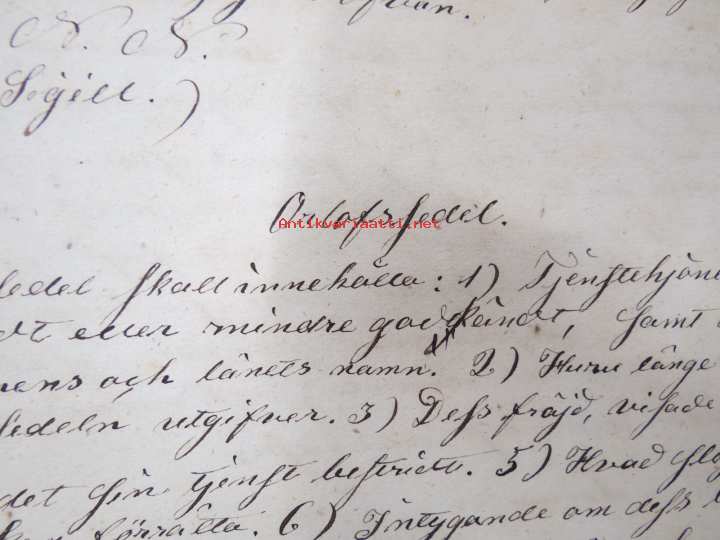 N. N.
Sigill.)
Orlofssedel.
Antikvariaatti.net
sedel skall innehålla: 1) Tjenstehjon
dt eller mindre godkändt, samt
nens och länets namn. 2) Huru länge
sedeln utgifver. 3) Dess fräjd, visade
det sin tjenst bestridt. 5) Hvad slag
förrätta. 6) Intygande om dess